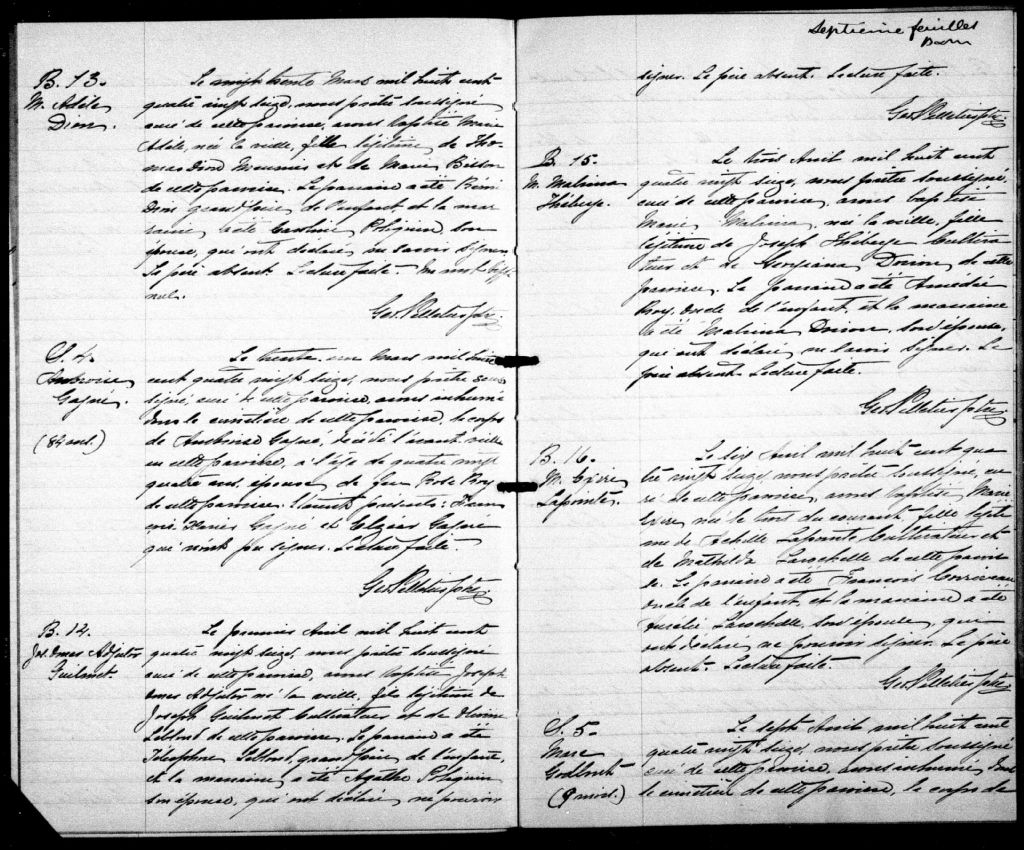 B. 13.
M. Adèle
Dion.
Le vingt trente Mars mil huit cent
quatre vingt seize, nous prêtre soussigné
curé de cette paroisse, avons baptisé Marie
Adèle, née la veille, fille légitime de Tho-
mas Dion Meunier et de Marie
de cette paroisse. Le parrain a été Rémi
Dion grand père de l'enfant et la mar
raine a été Caroline Poliquin son
épouse, qui ont déclaré ne savoir signer
Le père absent. Lecture faite. Un mot
nul.
Geo. Pelletier ptre
S. 4.
Ambroise
Gagné.
(84 ans.)
Le trente un Mars mil huit
cent quatre vingt seize, nous prêtre sous
signé, curé de cette paroisse, avons inhumé
dans le cimetière de cette paroisse, le corps
de Ambroise Gagné, décédé l'avant veille
en cette paroisse, à l'âge de quatre vingt
quatre ans, époux de feu Rose Roy
de cette paroisse. Etaient présents:
Gagné et Elzéar Gagné
qui n'ont pu signer. Lecture faite.
Geo. Pelletier ptre
B. 14.
Jos. Omer Adjutor
Guilmet.
Le premier Avril mil huit cent
quatre vingt seize, nous prêtre soussigné
curé de cette paroisse, avons baptisé Joseph
Omer Adjutor né la veille, fils légitime de
Joseph Guilmet Cultivateur et de
Leblond de cette paroisse. Le parrain a été
Télesphore Leblond, grand père de l'enfant,
et la marraine a été Agathe Poliquin
son épouse, qui ont déclaré ne pouvoir
Septième feuilles
signer. Le père absent. Lecture faite.
Geo. Pelletier ptre
B. 15.
M. Malvina
Théberge.
Le trois Avril mil huit cent
quatre vingt seize, nous prêtre soussigné,
curé de cette paroisse, avons baptisé
Marie Malvina, née la veille, fille
légitime de Joseph Théberge Cultiva
teur et de Georgiana Doiron de cette
paroisse. Le parrain a été Amédée
Roy, oncle de l'enfant, et la marraine
a été Malvina Doiron, son épouse,
qui ont déclaré ne savoir signer. Le
père absent. Lecture faite.
Geo. Pelletier ptre
B. 16.
M.
Lapointe.
Le six Avril mil huit cent qua
tre vingt seize, nous prêtre soussigné, cu
ré de cette paroisse, avons baptisé Marie
née le trois du courant, fille légiti
me de Lapointe Cultivateur et
de Mathilda Larochelle de cette parois
se. Le parrain a été François Corriveau
oncle de l'enfant, et la marraine a été
Aurélie Larochelle, son épouse, qui
ont déclaré ne pouvoir signer. Le père
absent. Lecture faite.
Geo. Pelletier ptre
S. 5.
Marc
Godbout
(9 mois.)
Le sept Avril mil huit cent
quatre vingt seize, nous prêtre soussigné
curé de cette paroisse, avons inhumé dans
le cimetière de cette paroisse, le corps de